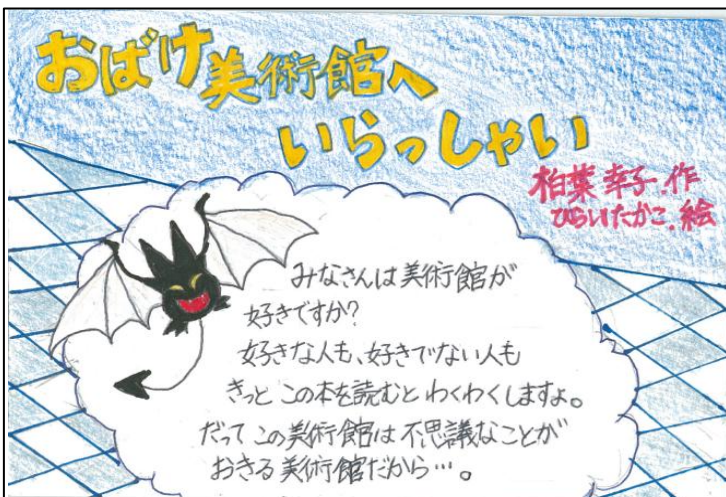 おばけ美術館へ
いらっしゃい
柏葉幸子.作
ひらいたかこ.絵
みなさんは美術館が
好きですか?
好きな人も、好きでない人も
きっとこの本を読むとわくわくしますよ。
だってこの美術館は不思議なことが
おきる美術館だから…。